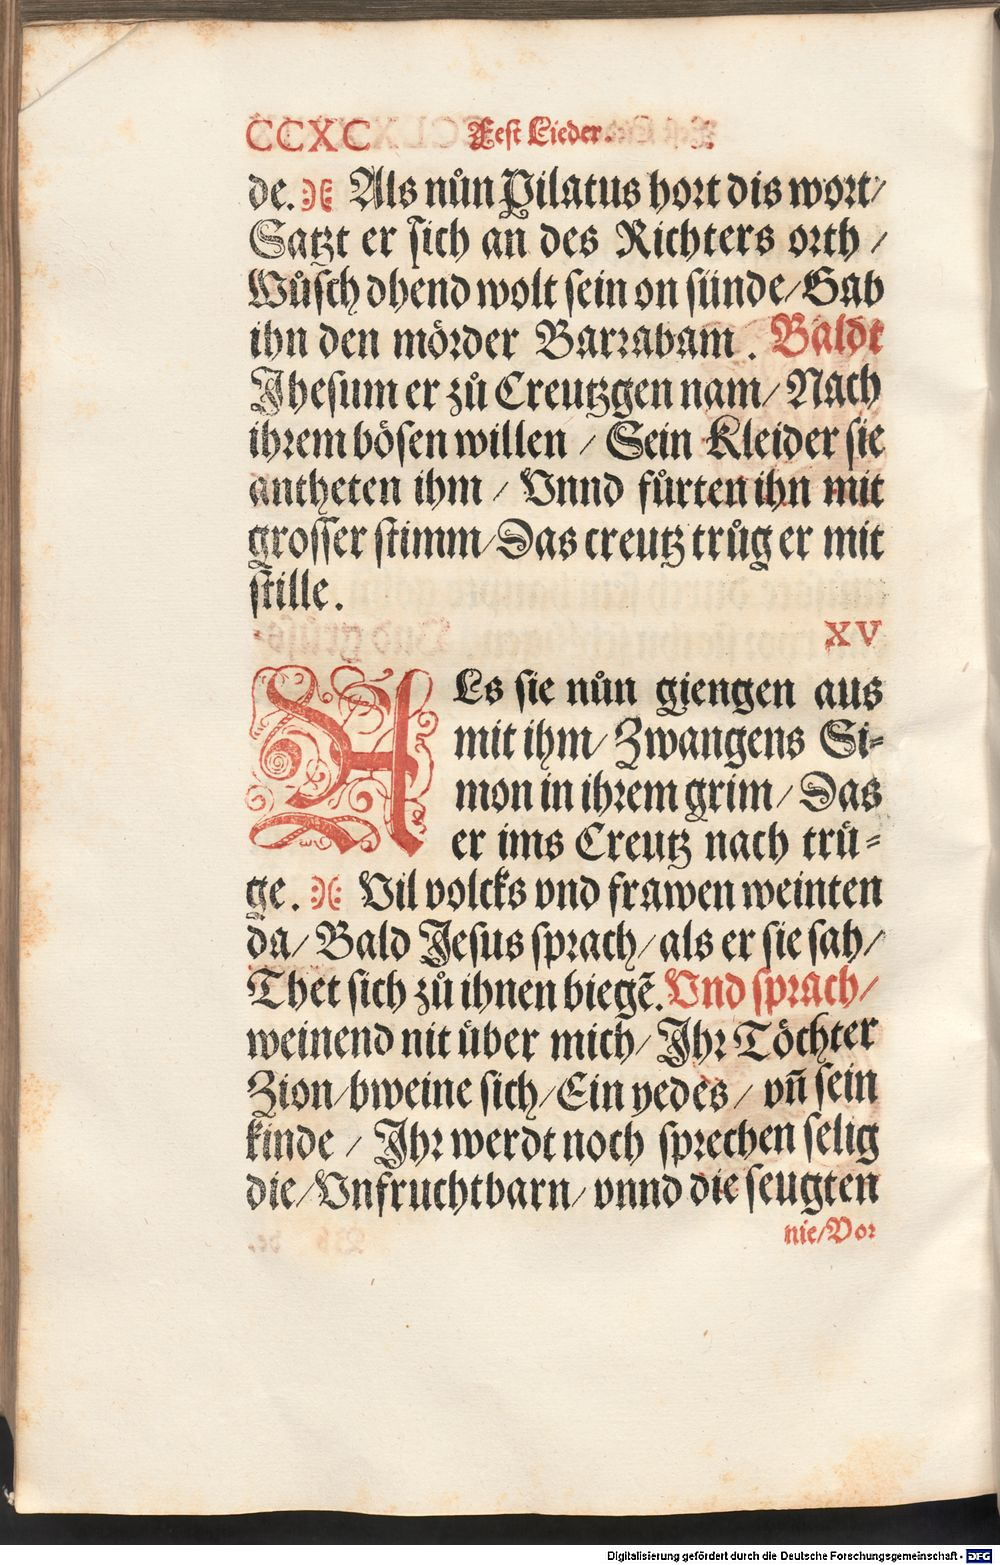 CCXC Fest Lieder.
de. Als nůn Pilatus hort dis wort/
Satzt er sich an des Richters orth /
Wůsch dhend wolt sein on sünde/Gab
ihn den mörder Barrabam . Baldt
Jhesum er zů Creutzgen nam/ Nach
ihrem bösen willen / Sein Kleider sie
antheten ihm / Vnnd fůrten ihn mit
grosser stimm/Das creutz trůg er mit
stille.
XV
ALs sie nůn giengen aus
mit ihm/ Zwangens Si-
mon in ihrem grim/ Das
er ims Creutz nach trů-
ge. Vil volcks vnd frawen weinten
da/ Bald Jesus sprach/ als er sie sah/
Thet sich zů ihnen biegē. Vnd sprach/
weinend nit über mich/ Jhr Töchter
Zion/bweine sich/Ein yedes / vñ sein
kinde / Jhr werdt noch sprechen selig
die/Vnfruchtbarn/ vnnd die seugten
nie/Vor
Digitalisierung gefördert durch die Deutsche Forschungsgemeinschaft - DFG